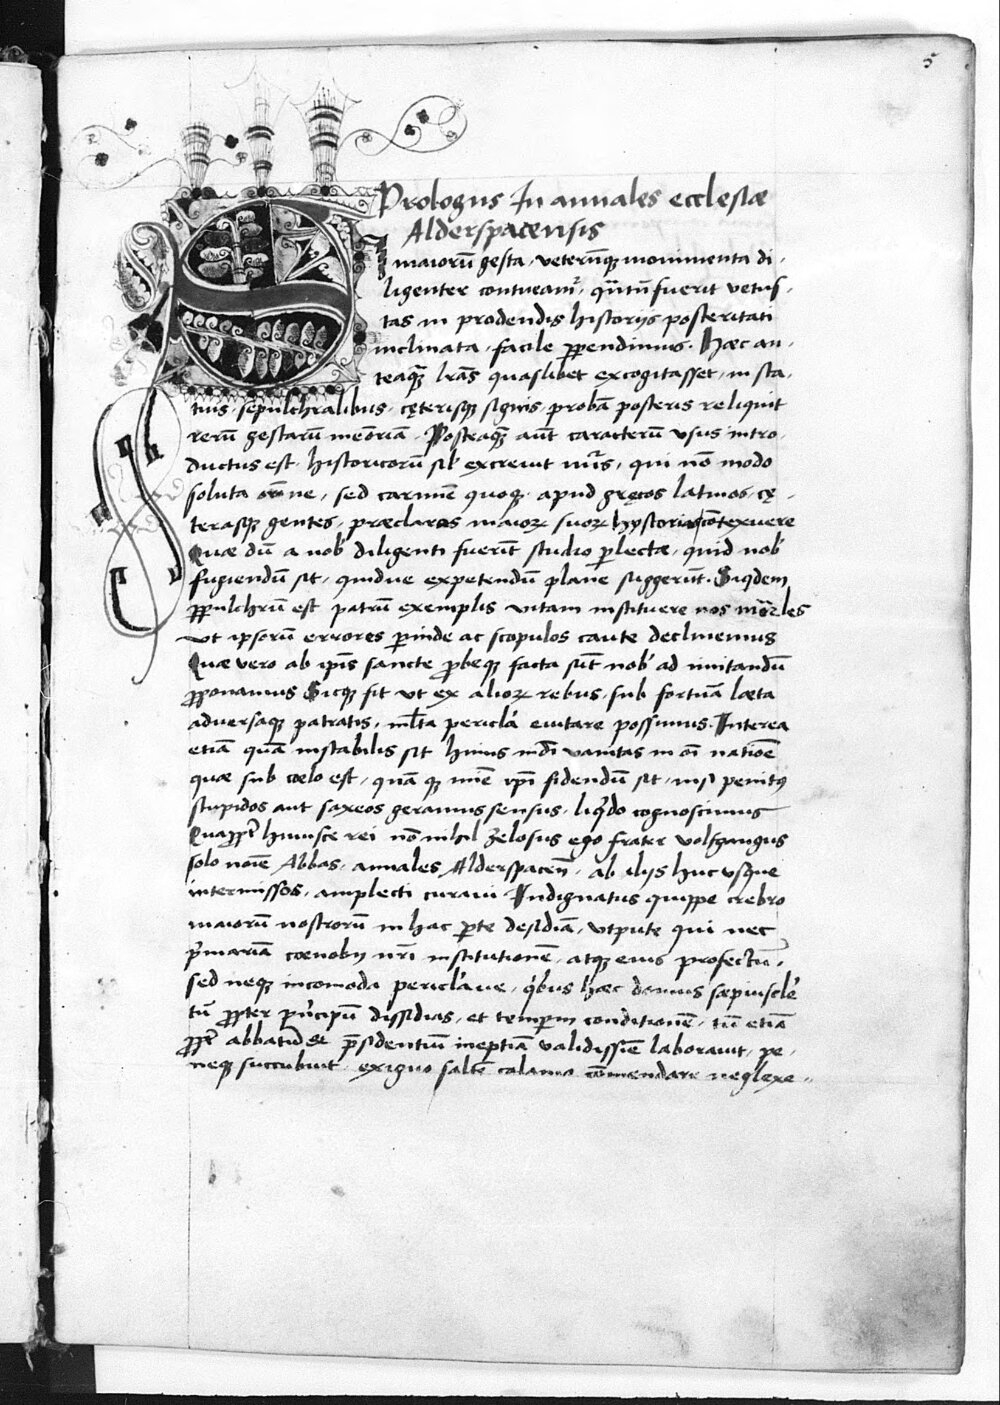 5
Prologus In annales ecclesiæ
Alderspacensis
SI maiorū gesta, veterūq̄ monimenta di-
ligenter contueamr̄, qn̄tū fuerit vetus-
tas in prodendis historijs posteritati
inclinata, facile ꝑpendimus. Hæc an-
teaq̄ lrās quaslibet excogitasset, in sta-
tuis, sepulchralibus, cęterisq̄ signis, probā posteris reliquit
rerū gestarū meōriā. Posteaq̄ aūt caracterū vsus intro-
ductus est, historicorū sil' excreuit nūs, qui nō modo
soluta orōne, sed carmīe quoq̄, apud gręcos latinos, cę-
terasq̄ gentes, præclaras maioꝝ suoꝝ hystorias cōtexuere
Quæ dū a nob' diligenti fuerīt studio ꝑlectæ, quid nob'
fugiendū sit, quidue expetendū plane suggerūt. Siq̇dem
ꝑpulchrū est patrū exemplis vitam instituere nos mōrtales
Vt ipsorū errores ꝑinde ac scopulos caute declinemus
Quæ vero ab ip̄is sancte ꝓbeq̄ facta sūt nob' ad imitandū
ꝓponamus Sicq̄ fit vt ex alioꝝ rebus, sub fortuā læta
aduersaq̄ patratis, ml̄ta pericl'a euitare possimus. Interea
etiā quā instabilis sit huius mdī vanitas in oī natiōe
quæ sub coelo est, quā q̄ mīe rp̄i fidendū sit, nisi penitꝰ
stupidos aut saxeos geramus sensus, liq̇do cognoscimus
Quapꝓr̄ huiusce rei nō nihil zelosus ego frater volfgangus
solo noīe Abbas, annales Alderspaceñ, ab alijs huc vsq̄ue
intermissos, amplecti curaui Indignatus quippe crebro
maiorū nostrorū in hac ꝑte desidiā, vtpute qui nec
p̄mariā coenobij nr̄i institutionē, atq̄ eius profectū,
sed neq̄ incomoda pericl'aue, q̇bus hæc domus sæpiuscl'e
tū ꝓpter p̄ncipū dissidias, et temꝑum conditionē, tū etiā
ꝓpr̄ abbatū et p̄sidentiū ineptiā validissīe laborauit, pe-
neq̄ succubuit, exiguo saltē calamo cōmendare neglexe-